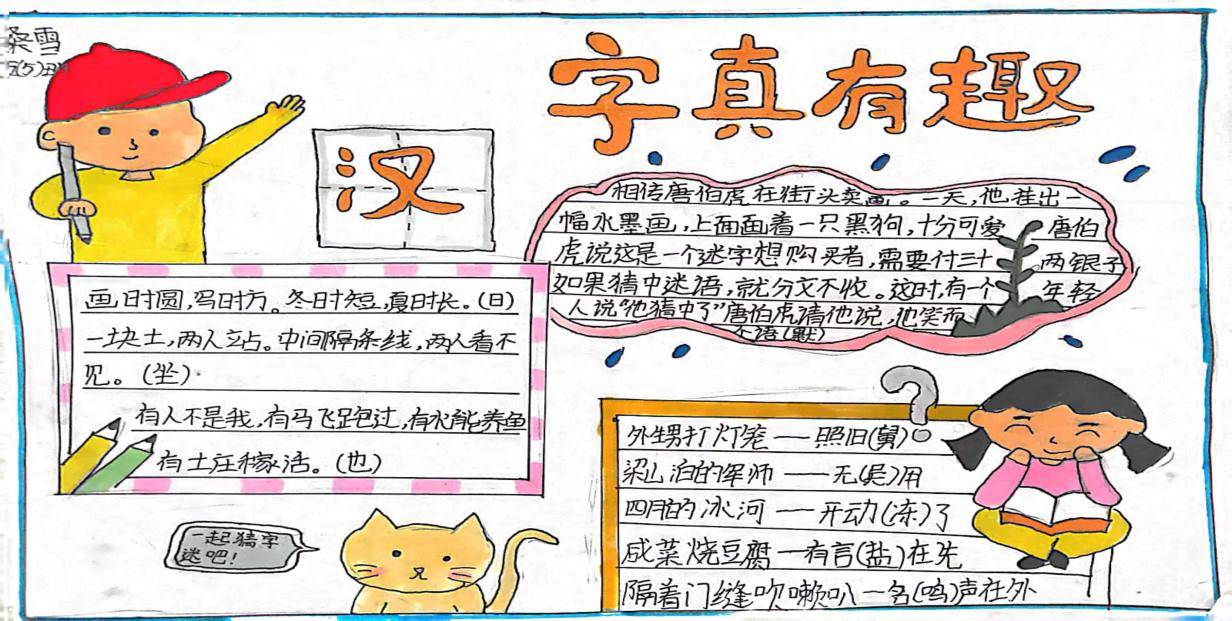 桑雪
五(5)班
汉
字真有趣
画时圆,写时方。冬时短,夏时长。(日)
一块土,两人站。中间隔条线,两人看不
见。(坐)
有人不是我,有马飞跑过,有水能养鱼
有土庄稼活。(也)
一起猜字
迷吧!
相传唐伯虎在街头卖画。一天,他挂出一
幅水墨画,上面画着一只黑狗,十分可爱 唐伯
虎说这是一个迷字想购买者,需要付三十 两银子
如果猜中迷语,就分文不收。这时,有一个 年轻
人说“他猜中了”唐伯虎请他说,他笑而
不语(默)
外甥打灯笼——照旧(舅)
梁山泊的军师——无(吴)用
四月的冰河——开动(冻)了
咸菜烧豆腐—有言(盐)在先
隔着门缝吹喇叭—名(鸣)声在外